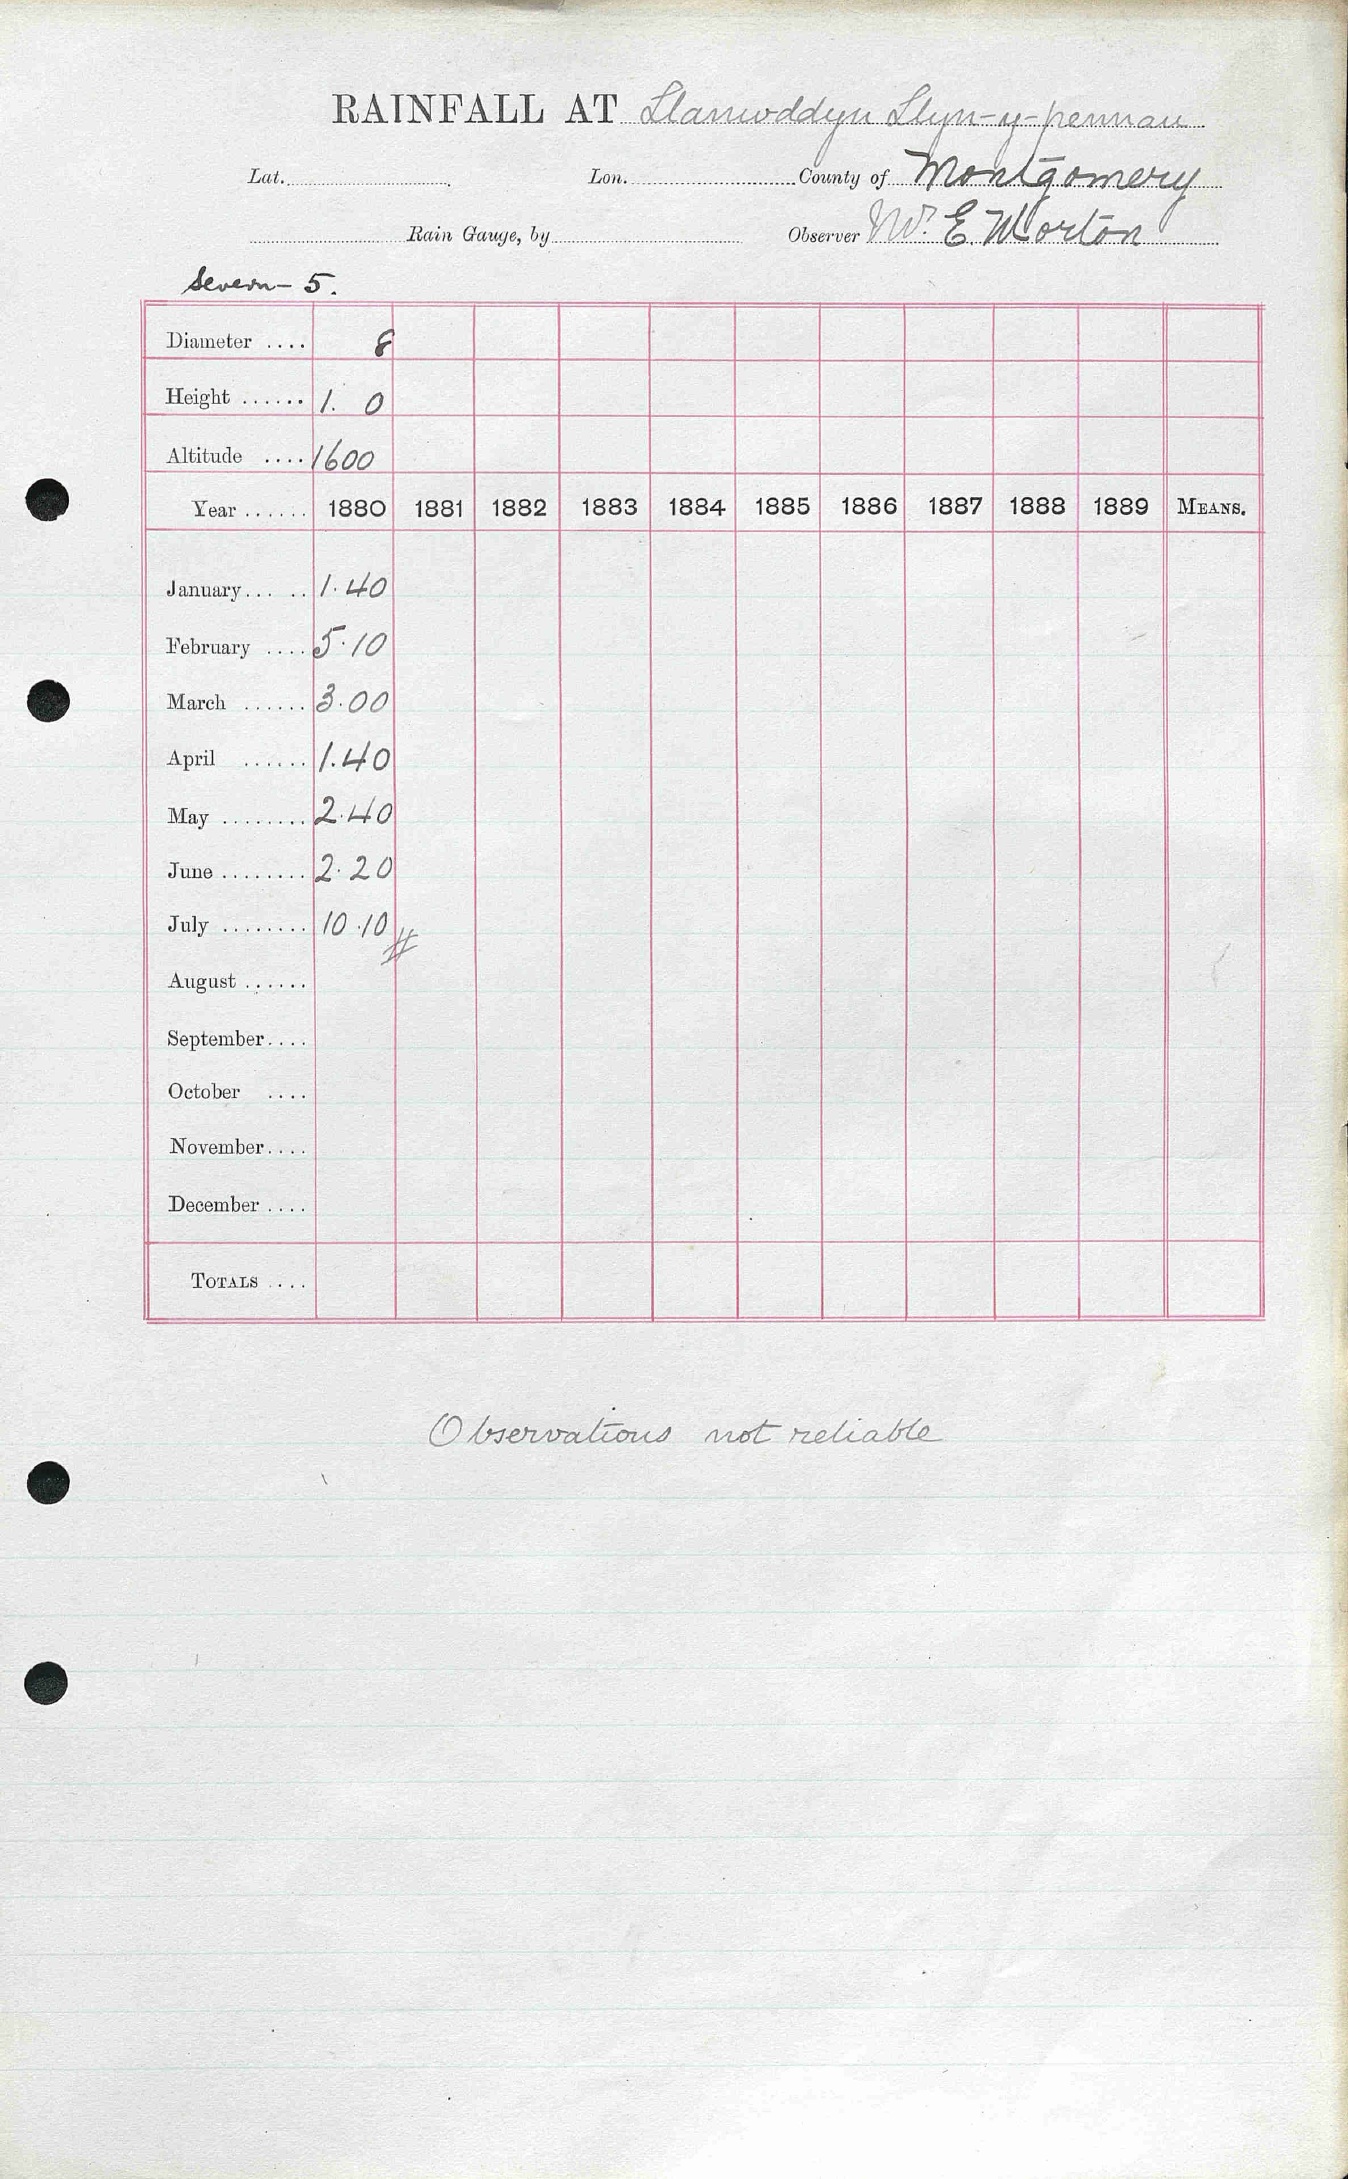 RAINFALL AT Llanwddyn Llyn-y-pennau
Lat. Lon. County of Montgomery
Rain Gauge, by Observer Mr. E. Morton
Severn - 5.
Diameter .... 8
Height ...... 1. 0
Altitude .... 1600
Year ...... 1880 1881 1882 1883 1884 1885 1886 1887 1888 1889 MEANS.
January... .. 1.40
February .... 5.10
March ...... 3.00
April ...... 1.40
May ........ 2.40
June ........ 2.20
July ........ 10.10 #
August ......
September....
October ....
November....
December ....
TOTALS ....
Observations not reliable